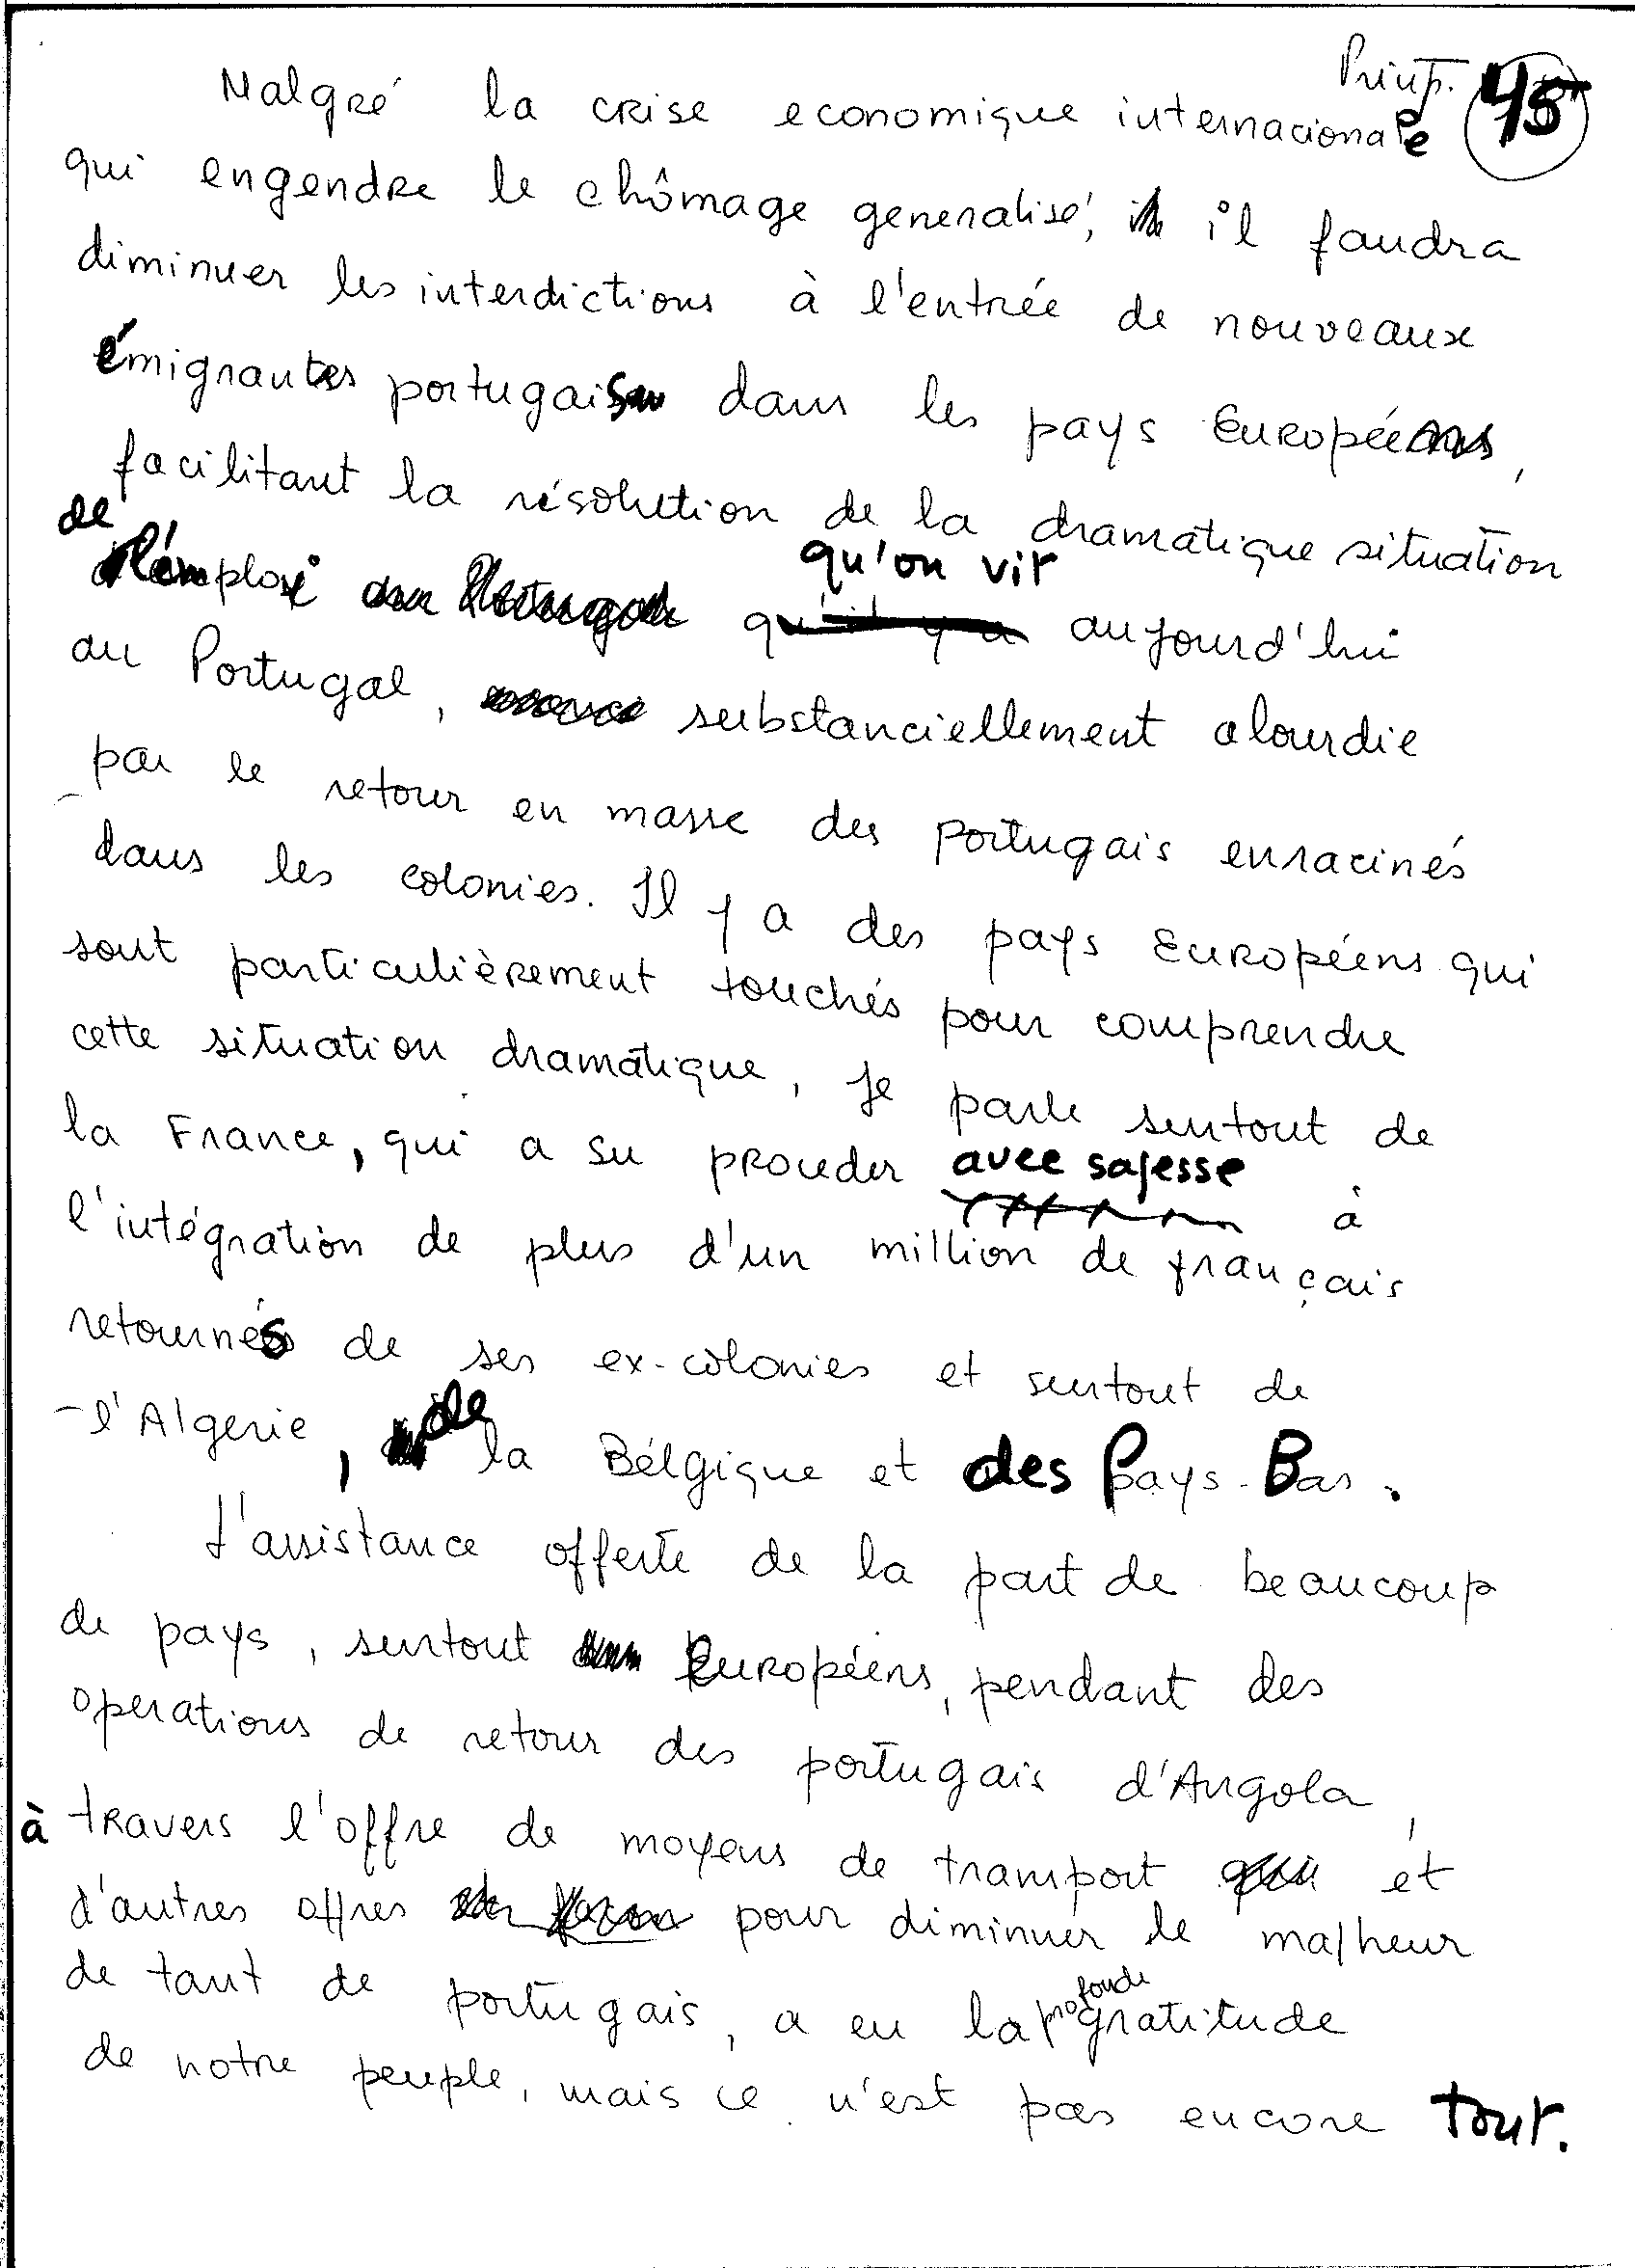 Prinp. 45
Malgré la crise economique internacionale
qui engendre le chômage generalisé, il faudra
diminuer les interdictions à l'entrée de nouveaux
émigrants portugais dans les pays Européens,
facilitant la résolution de la dramatique situation
de l'émploi qu'on vit aujourd'hui
au Portugal, substanciellement alourdie
par le retour en masse des portugais enracinés
dans les colonies. Il y a des pays Européens qui
sont particulièrement touchés pour comprendre
cette situation dramatique, je parle surtout de
la France, qui a su proceder avec sagesse à
l'intégration de plus d'un million de français
retournés de ses ex-colonies et surtout de
l'Algerie, de la Bélgique et des Pays-Bas.
L'assistance offerte de la part de beaucoup
de pays, surtout Européens, pendant des
operations de retour des portugais d'Angola,
à travers l'offre de moyens de transport et
d'autres offres pour diminuer le malheur
de tant de portugais, a eu la profonde gratitude
de notre peuple, mais ce n'est pas encore tout.